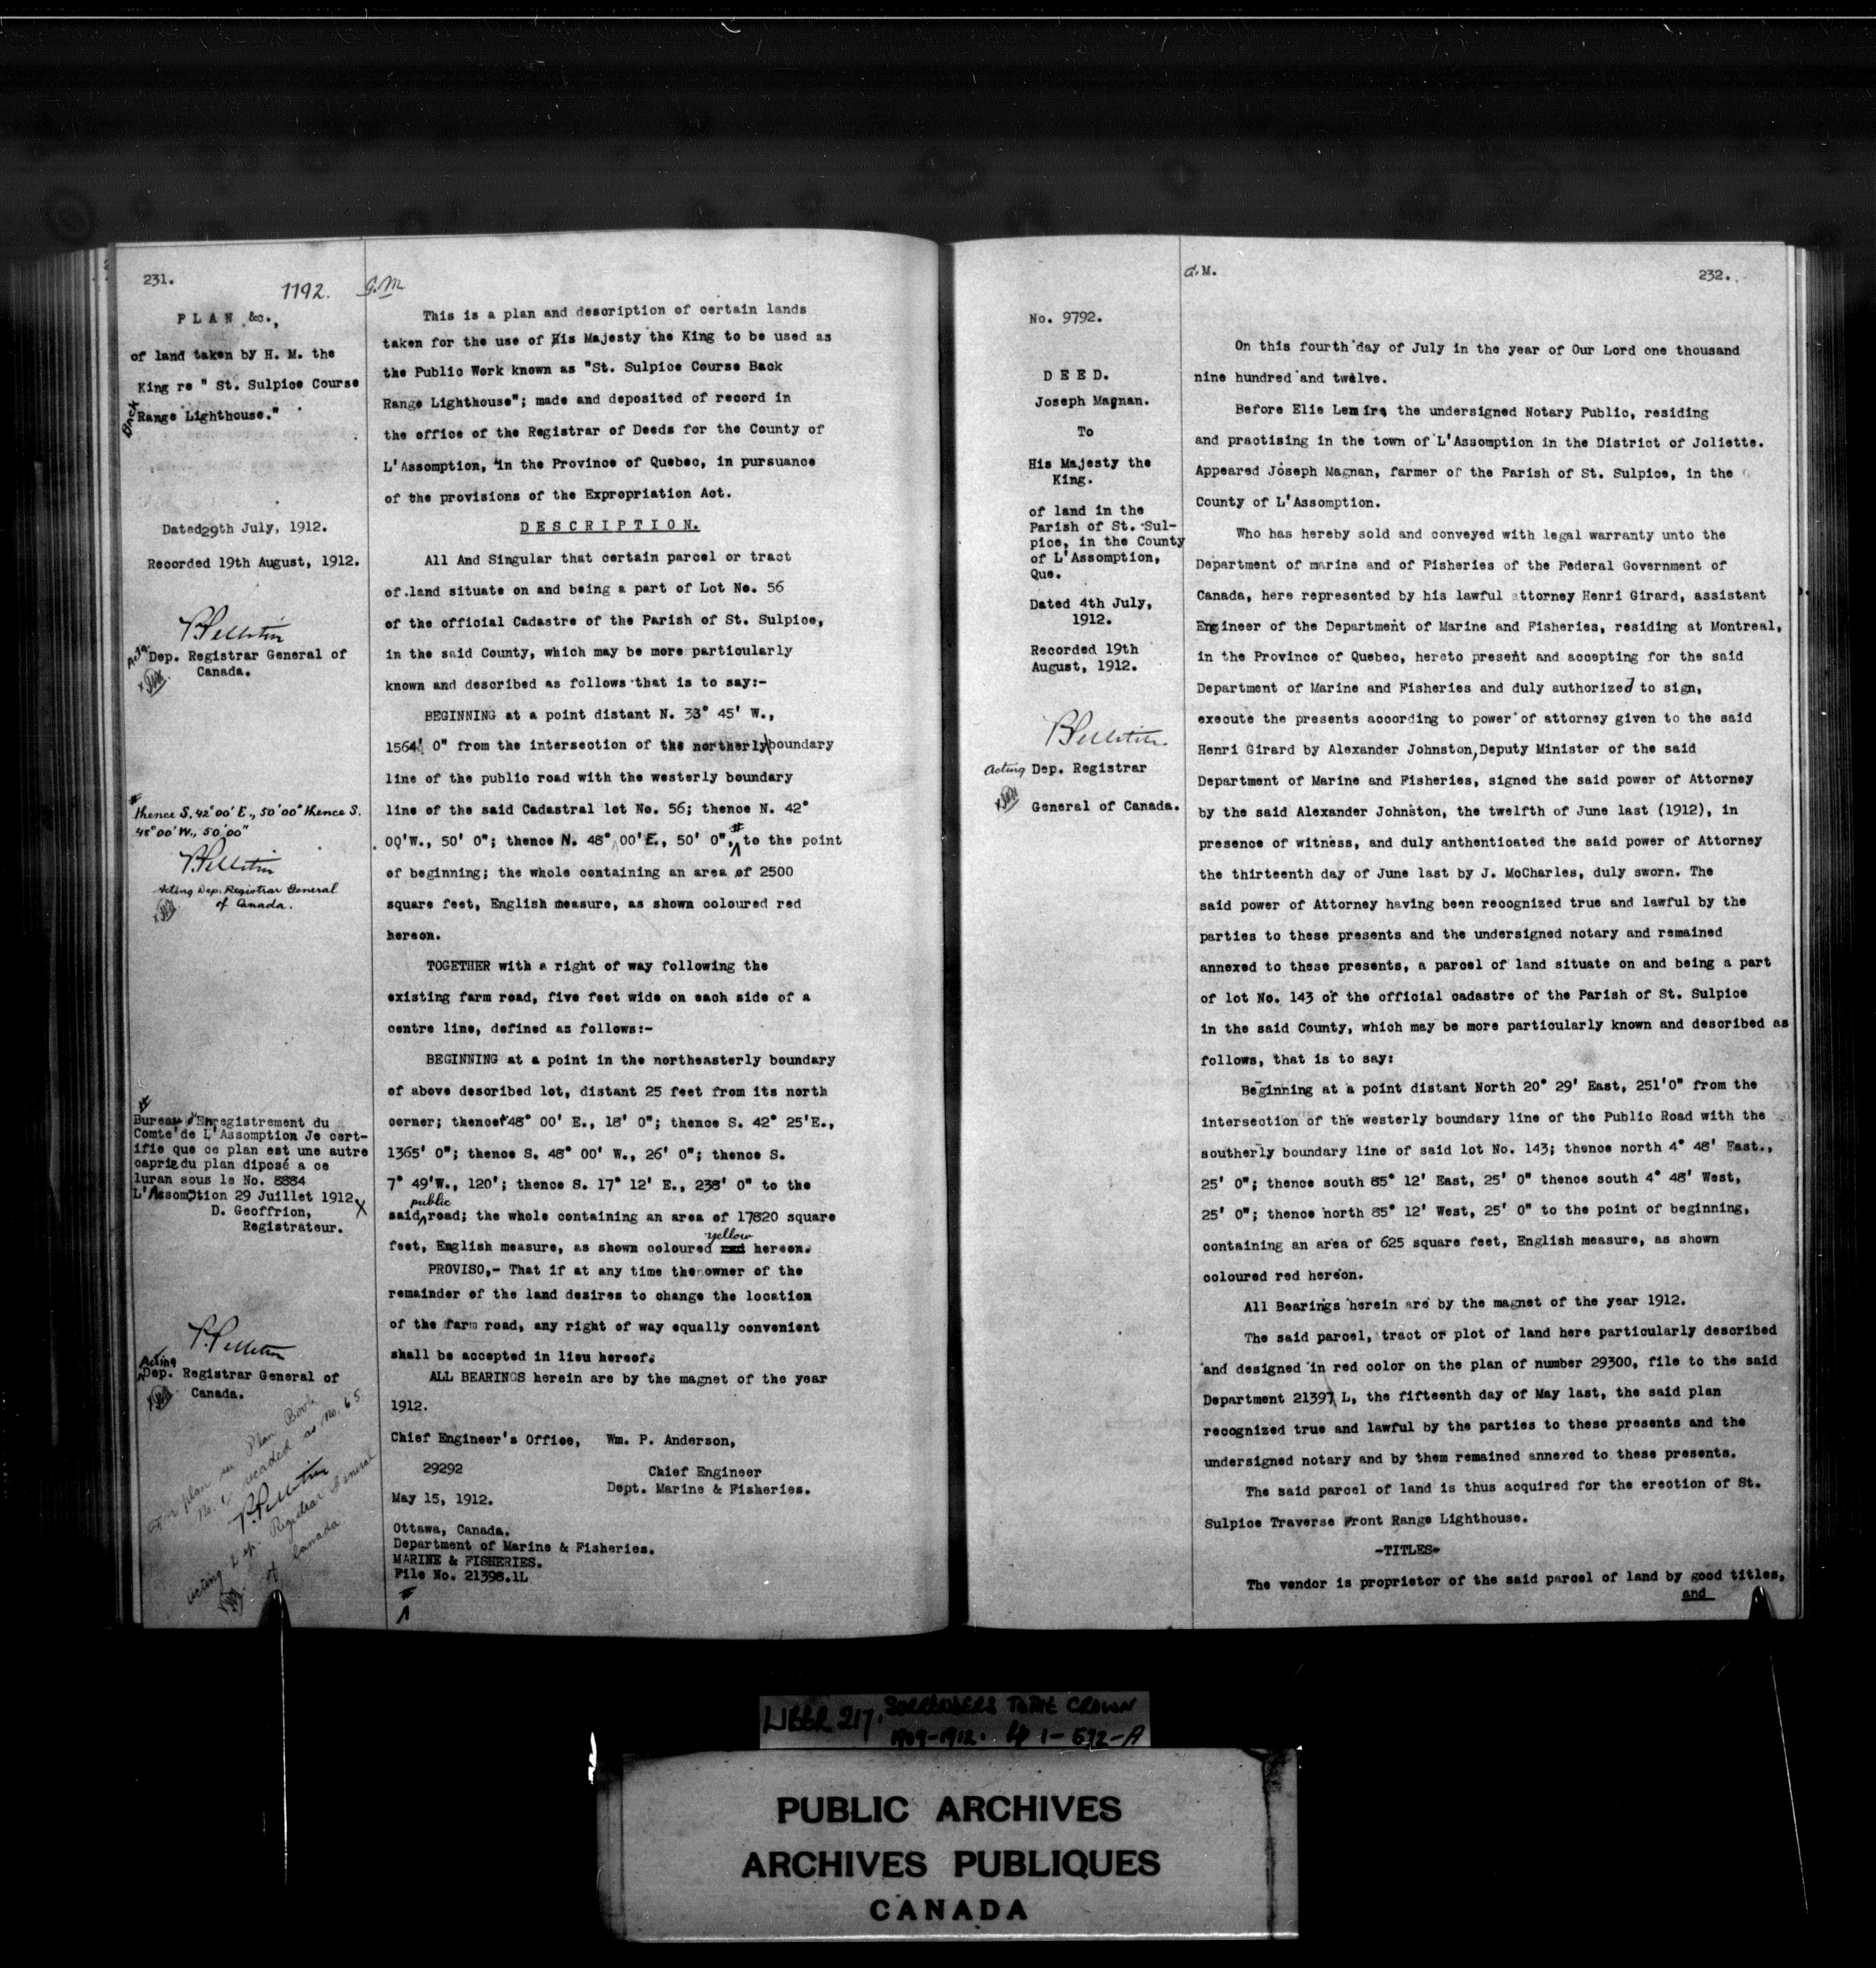 231.
1192.
G.M.
PLAN &c.,
of land taken by H. M. the
King re " St. Sulpice Course
Back
Range Lighthouse."
Dated 29th July, 1912.
Recorded 19th August, 1912.
P Pelletier
Actg
Dep. Registrar General of
Canada.
#
thence S. 42° 00' E., 50' 00" thence S.
48° 00' W., 50' 00"
P Pelletier
Acting Dep. Registrar General
of Canada.
#
Bureau d'Enregistrement du
Comte de L'Assomption Je cert-
ifie que ce plan est une autre
caprie du plan diposé a ce
luran sous le No. 8884
L'Assomption 29 Juillet 1912
D. Geoffrion,
Registrateur.
P. Pelletier
Acting
Dep. Registrar General of
Canada.
For plan see Plan Book
No. 1, recorded as No. 65
P. Pelletier
Acting Dep. Registrar General
of Canada
This is a plan and description of certain lands
taken for the use of His Majesty the King to be used as
the Public Work known as "St. Sulpice Course Back
Range Lighthouse"; made and deposited of record in
the office of the Registrar of Deeds for the County of
L'Assomption, in the Province of Quebec, in pursuance
of the provisions of the Expropriation Act.
DESCRIPTION.
All And Singular that certain parcel or tract
of land situate on and being a part of Lot No. 56
of the official Cadastre of the Parish of St. Sulpice,
in the said County, which may be more particularly
known and described as follows that is to say:-
BEGINNING at a point distant N. 33° 45' W.,
1564' 0" from the intersection of the northerly boundary
line of the public road with the westerly boundary
line of the said Cadastral lot No. 56; thence N. 42°
00'W., 50' 0"; thence N. 48° 00'E., 50' 0", # to the point
of beginning; the whole containing an area of 2500
square feet, English measure, as shown coloured red
hereon.
TOGETHER with a right of way following the
existing farm road, five feet wide on each side of a
centre line, defined as follows:-
BEGINNING at a point in the northeasterly boundary
of above described lot, distant 25 feet from its north
corner; thence 48° 00' E., 18' 0"; thence S. 42° 25'E.,
1365' 0"; thence S. 48° 00' W., 26' 0"; thence S.
7° 49'W., 120'; thence S. 17° 12' E., 238' 0" to the
public
said road; the whole containing an area of 17820 square
yellow
feet, English measure, as shown coloured red hereon.
PROVISO,- That if at any time the owner of the
remainder of the land desires to change the location
of the farm road, any right of way equally convenient
shall be accepted in lieu hereof.
ALL BEARINGS herein are by the magnet of the year
1912.
Chief Engineer's Office, Wm. P. Anderson,
29292 Chief Engineer
Dept. Marine & Fisheries.
May 15, 1912.
Ottawa, Canada.
Department of Marine & Fisheries.
MARINE & FISHERIES.
File No. 21398.1L
#
G.M.
232.
No. 9792.
DEED.
Joseph Magnan.
To
His Majesty the
King.
of land in the
Parish of St. Sul-
pice, in the County
of L'Assomption,
Que.
Dated 4th July,
1912.
Recorded 19th
August, 1912.
P Pelletier
Acting Dep. Registrar
General of Canada.
On this fourth day of July in the year of Our Lord one thousand
nine hundred and twelve.
Before Elie Lemire the undersigned Notary Public, residing
and practising in the town of L'Assomption in the District of Joliette.
Appeared Joseph Magnan, farmer of the Parish of St. Sulpice, in the
County of L'Assomption.
Who has hereby sold and conveyed with legal warranty unto the
Department of marine and of Fisheries of the Federal Government of
Canada, here represented by his lawful attorney Henri Girard, assistant
Engineer of the Department of Marine and Fisheries, residing at Montreal,
in the Province of Quebec, hereto present and accepting for the said
Department of Marine and Fisheries and duly authorized to sign,
execute the presents according to power of attorney given to the said
Henri Girard by Alexander Johnston, Deputy Minister of the said
Department of Marine and Fisheries, signed the said power of Attorney
by the said Alexander Johnston, the twelfth of June last (1912), in
presence of witness, and duly anthenticated the said power of Attorney
the thirteenth day of June last by J. McCharles, duly sworn. The
said power of Attorney having been recognized true and lawful by the
parties to these presents and the undersigned notary and remained
annexed to these presents, a parcel of land situate on and being a part
of lot No. 143 of the official cadastre of the Parish of St. Sulpice
in the said County, which may be more particularly known and described as
follows, that is to say:
Beginning at a point distant North 20° 29' East, 251'0" from the
intersection of the westerly boundary line of the Public Road with the
southerly boundary line of said lot No. 143; thence north 4° 48' East.,
25' 0"; thence south 85° 12' East, 25' 0" thence south 4° 48' West,
25' 0"; thence north 85° 12' West, 25' 0" to the point of beginning,
containing an area of 625 square feet, English measure, as shown
coloured red hereon.
All Bearings herein are by the magnet of the year 1912.
The said parcel, tract or plot of land here particularly described
and designed in red color on the plan of number 29300, file to the said
Department 21397 L, the fifteenth day of May last, the said plan
recognized true and lawful by the parties to these presents and the
undersigned notary and by them remained annexed to these presents.
The said parcel of land is thus acquired for the erection of St.
Sulpice Traverse Front Range Lighthouse.
-TITLES-
The vendor is proprietor of the said parcel of land by good titles,
and
LIBER 217. SURRENDERS TO THE CROWN
1909-1912. pp 1-592-A
PUBLIC ARCHIVES
ARCHIVES PUBLIQUES
CANADA